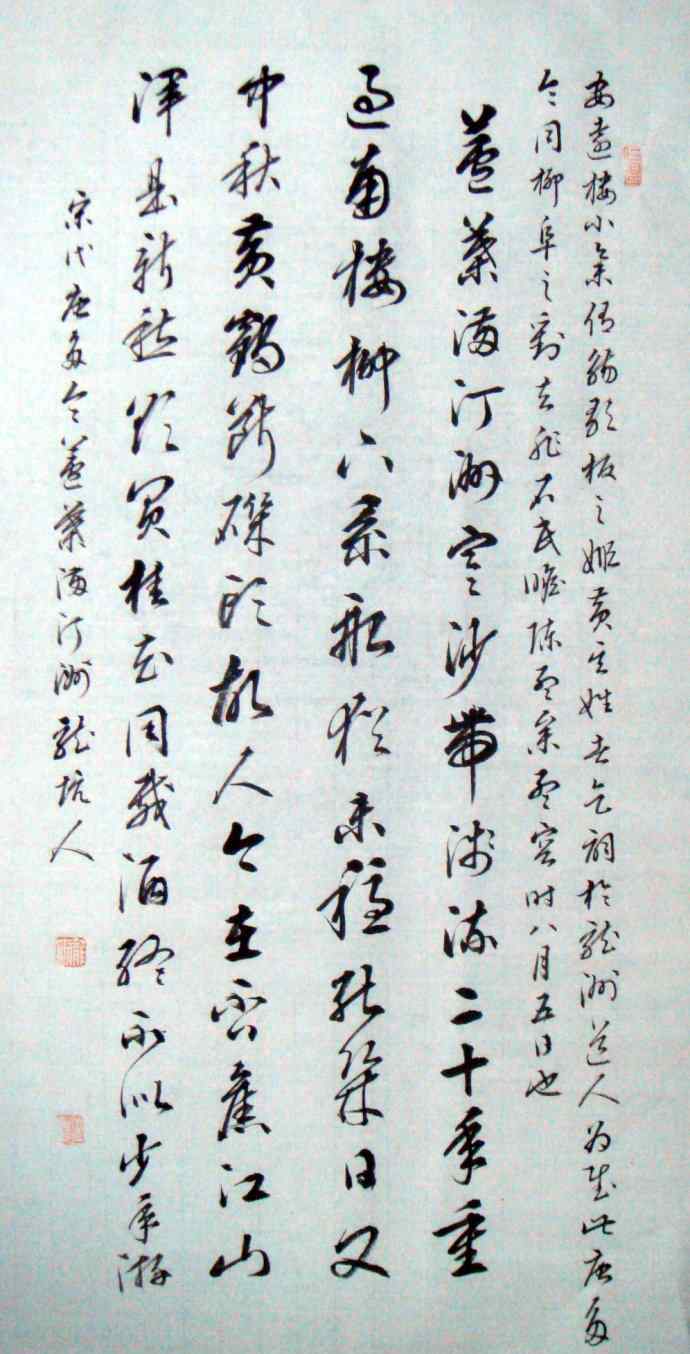 安遠樓小集侑觴歌板之姬黃其姓者乞詞於龍洲道人為賦此唐多
令同柳阜之劉去非石民瞻陳孟參孟容時八月五日也
蘆葉滿汀洲寒沙帶淺流二十年重
過南樓柳下系船猶未穩能幾日又
中秋黃鶴斷磯頭故人今在否舊江山
渾是新愁欲買桂花同載酒終不似少年游
宋代唐多令蘆葉滿汀洲龍坑人